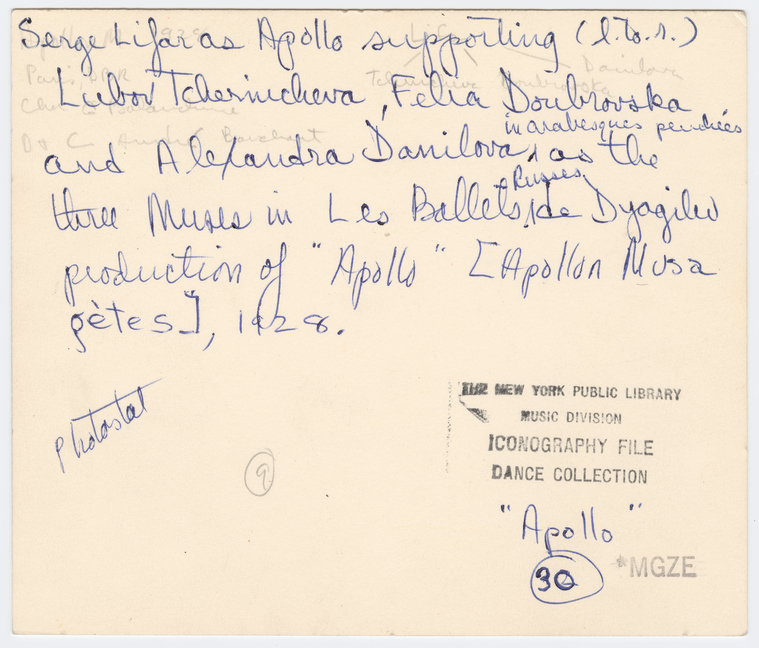 Serge Lifar as Apollo supporting (l.to.r.)
Lubov Tchernicheva, Felia Doubrovska
in arabesques penchées
and Alexandra Danilova, as the
Russes
three Muses in Les Ballets de Dyagilev
production of "Apollo" [Apollon Musa
gètes], 1928.
Photostat
9
THE NEW YORK PUBLIC LIBRARY
MUSIC DIVISION
ICONOGRAPHY FILE
DANCE COLLECTION
"Apollo"
30
*MGZE
1928
Danilova
Paris,
Tchernicheva Doubrovska